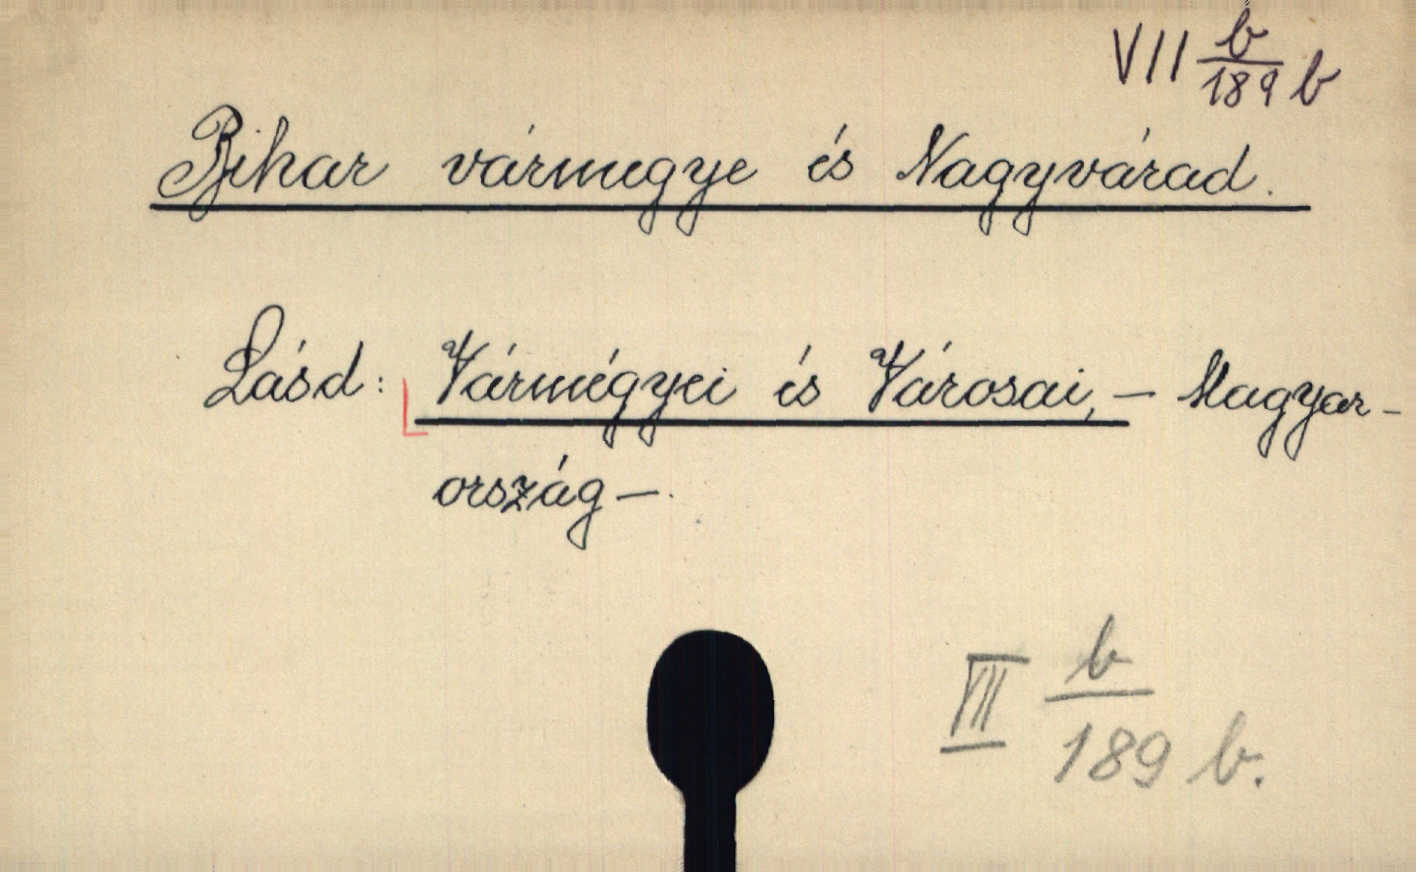 VII b/189 b
Bihar vármegye és Nagyvárad.
Lásd: Vármégyei és Városai, — Magyar-
ország —.
VII b/189 b.